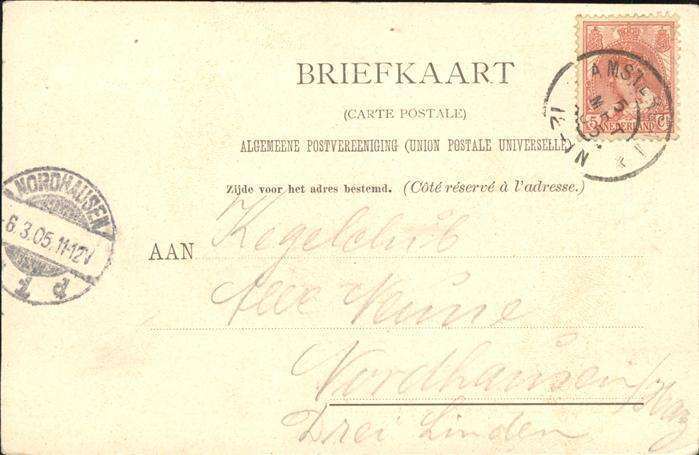 BRIEFKAART
(CARTE POSTALE)
ALGEMEENE POSTVEREENIGING (UNION POSTALE UNIVERSELLE)
Zijde voor het adres bestemd. (Côté réservé à l'adresse.)
AAN Kegelclub
Alle Neune
Nordhausen/Harz
Drei Linden
5 NEDERLAND Ct
AMSTER
5 MRT
12-1N
NORDHAUSEN
6.3.05.11-12V